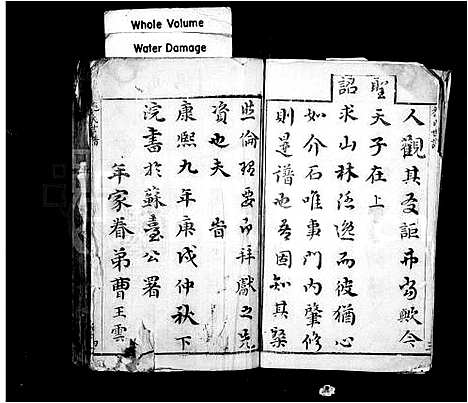 Whole Volume
Water Damage
人觀其
今
聖天子在上
詔求山林隱逸而彼猶心
如介石唯事門內肇修
則是譜也吾固知其為
熙倫
要而拜獻之先
資也夫 旹
康熙九年庚戌仲秋下
浣書於蘇臺公署
年家眷弟曹王雲